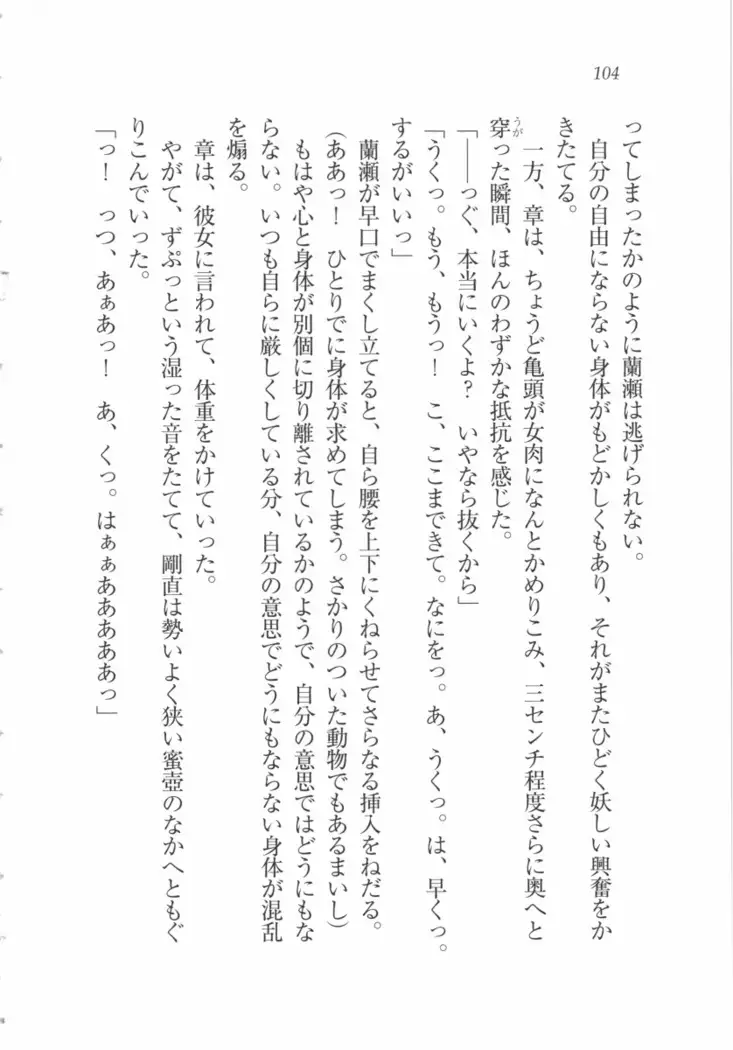 104
ってしまったかのように蘭瀬は逃げられない。
自分の自由にならない身体がもどかしくもあり、それがまたひどく妖しい興奮をか
きたてる。
一方、章は、ちょうど亀頭が女肉になんとかめりこみ、三センチ程度さらに奥へと
穿うがった瞬間、ほんのわずかな抵抗を感じた。
「――っぐ、本当にいくよ？　いやなら抜くから」
「うくっ。もう、もうっ！　こ、ここまできて。なにをっ。あ、うくっ。は、早くっ。
するがいいっ」
蘭瀬が早口でまくし立てると、自ら腰を上下にくねらせてさらなる挿入をねだる。
（ああっ！　ひとりでに身体が求めてしまう。さかりのついた動物でもあるまいし）
もはや心と身体が別個に切り離されているかのようで、自分の意思ではどうにもな
らない。いつも自らに厳しくしている分、自分の意思でどうにもならない身体が混乱
を煽る。
章は、彼女に言われて、体重をかけていった。
やがて、ずぷっという湿った音をたてて、剛直は勢いよく狭い蜜壺のなかへともぐ
りこんでいった。
「っ！　っつ、あぁあっ！　あ、くっ。はぁぁあああああっ」